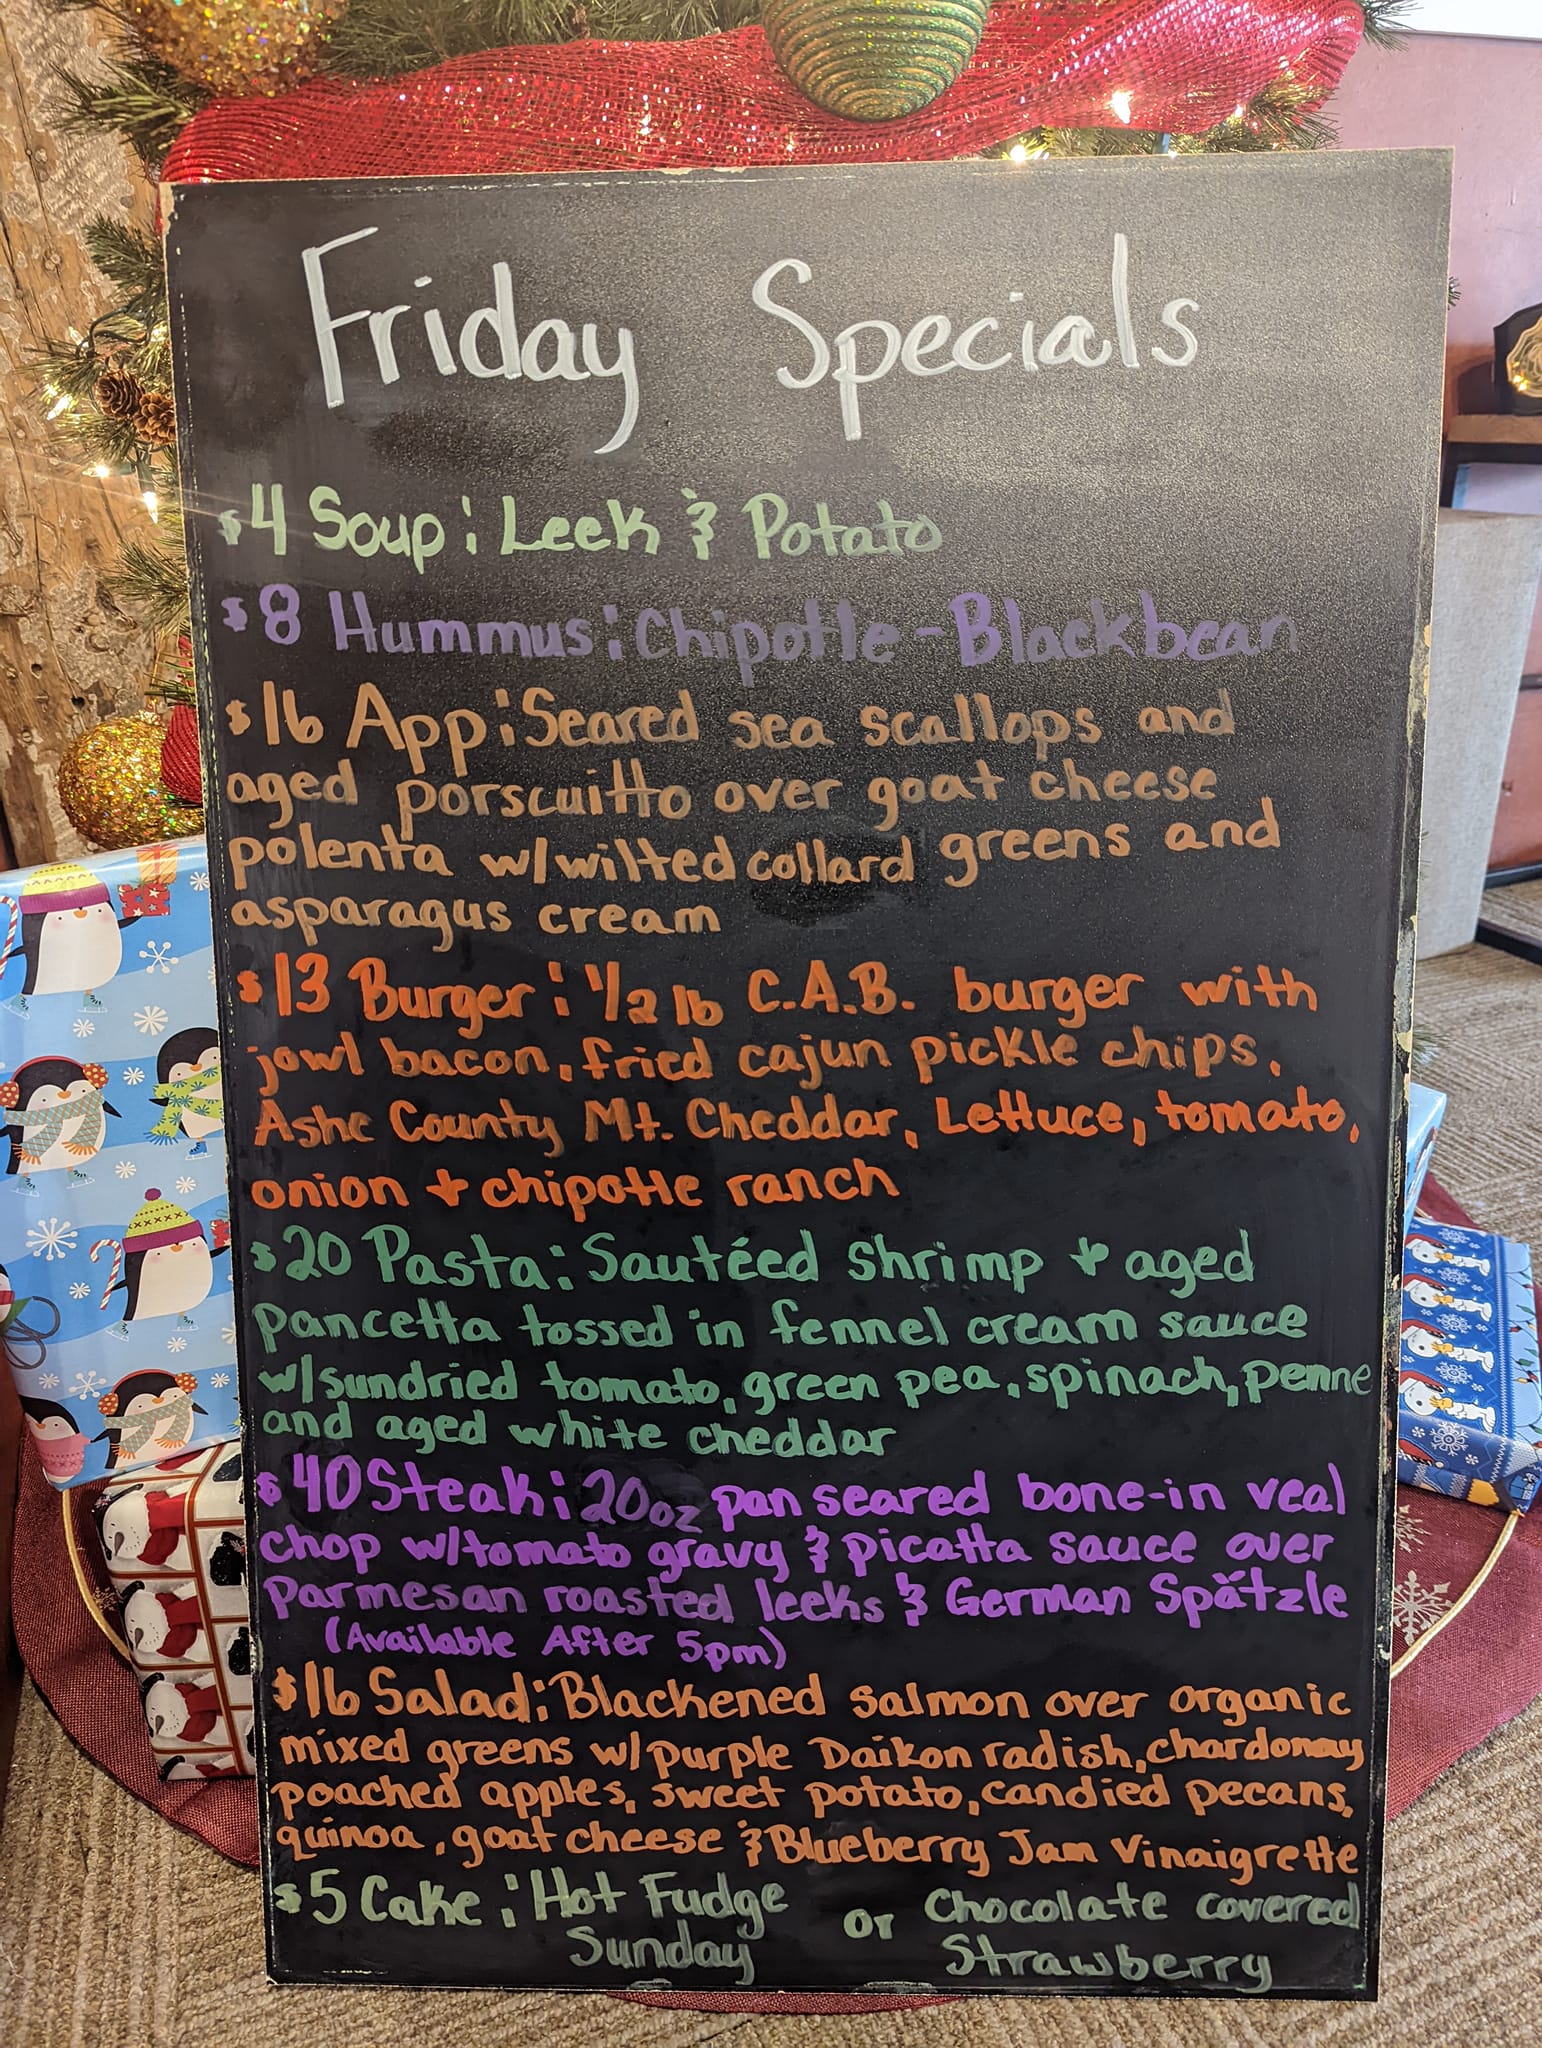 Friday Specials
$4 Soup: Leek & Potato
$8 Hummus: Chipotle-Blackbean
$16 App: Seared sea scallops and
aged porscuitto over goat cheese
polenta w/wilted collard greens and
asparagus cream
$13 Burger: 1/2 lb C.A.B. burger with
jowl bacon, fried cajun pickle chips,
Ashe County Mt. Cheddar, Lettuce, tomato,
onion + chipotle ranch
$20 Pasta: Sautéed shrimp + aged
pancetta tossed in fennel cream sauce
w/sundried tomato, green pea, spinach, penne
and aged white cheddar
$40 Steak: 20oz pan seared bone-in veal
chop w/tomato gravy & picatta sauce over
Parmesan roasted leeks & German Spätzle
(Available After 5pm)
$16 Salad: Blackened salmon over organic
mixed greens w/purple Daikon radish, chardonnay
poached apples, sweet potato, candied pecans,
quinoa, goat cheese & Blueberry Jam Vinaigrette
$5 Cake: Hot Fudge Sunday or Chocolate covered Strawberry